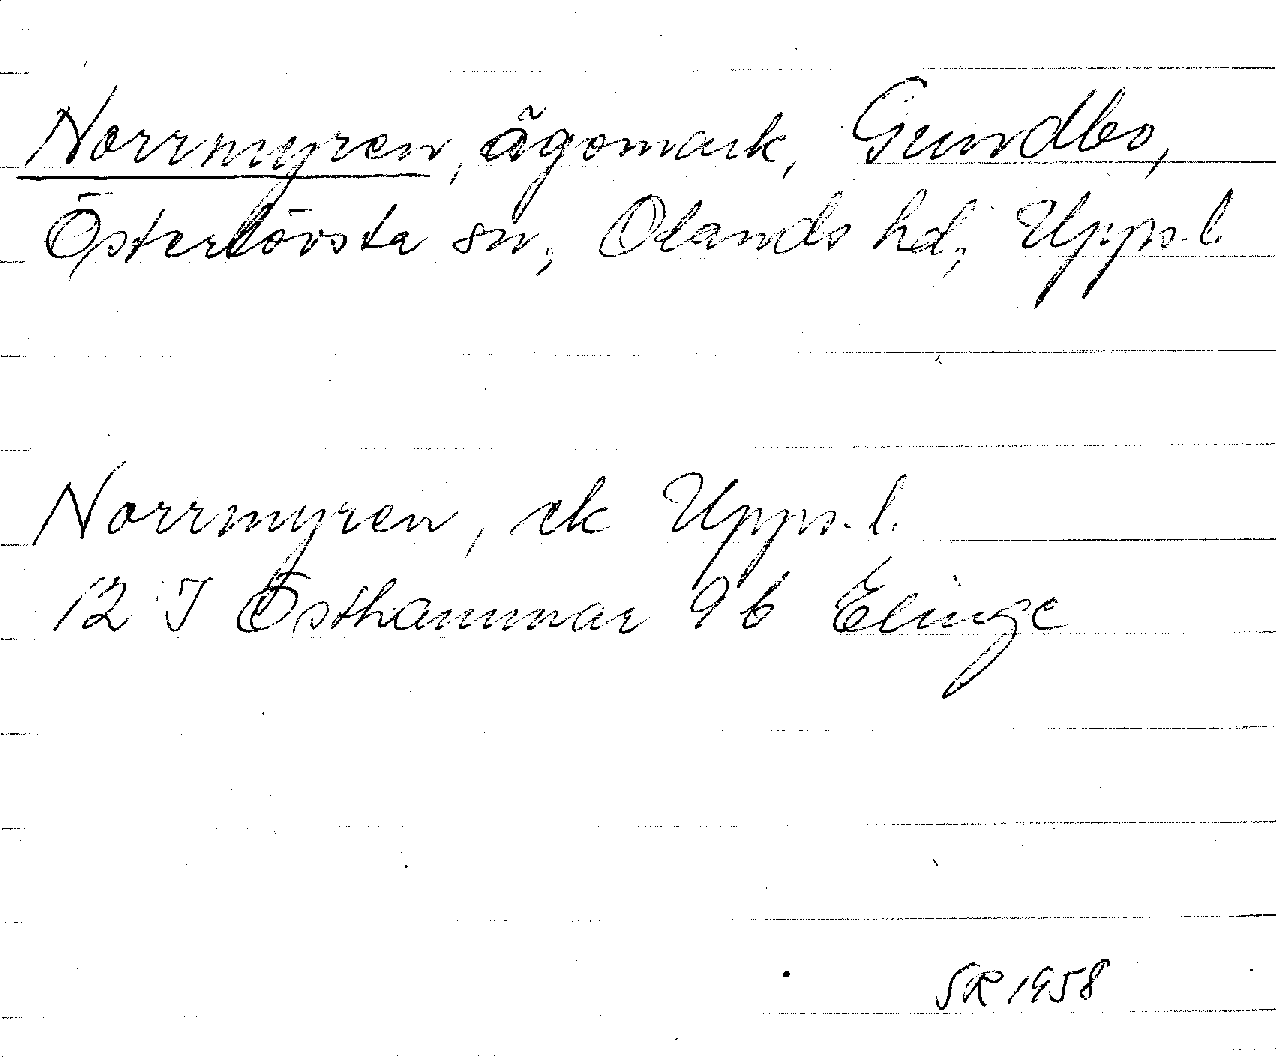 Norrmyren, ägomark, Gundbo,
Österlövsta sn, Olands hd, Uppl.
Norrmyren, ek Uppl.
12 I Östhammar 9b Elinge
SR 1958